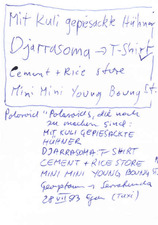 Mit Kuli gepiesackte Hühner
Djarrasoma → T-Shirt
Cement + Rice store
Mini Mini Young Boung St.
Polaroid "Polaroids, die noch
zu machen sind:
MIT KULI GEPIESACKTE
HÜHNER
DJARRASOMA T-SHIRT
CEMENT + RICE STORE
MINI MINI YOUNG BOUNG
Georgetown
28 VII 93 (Taxi)